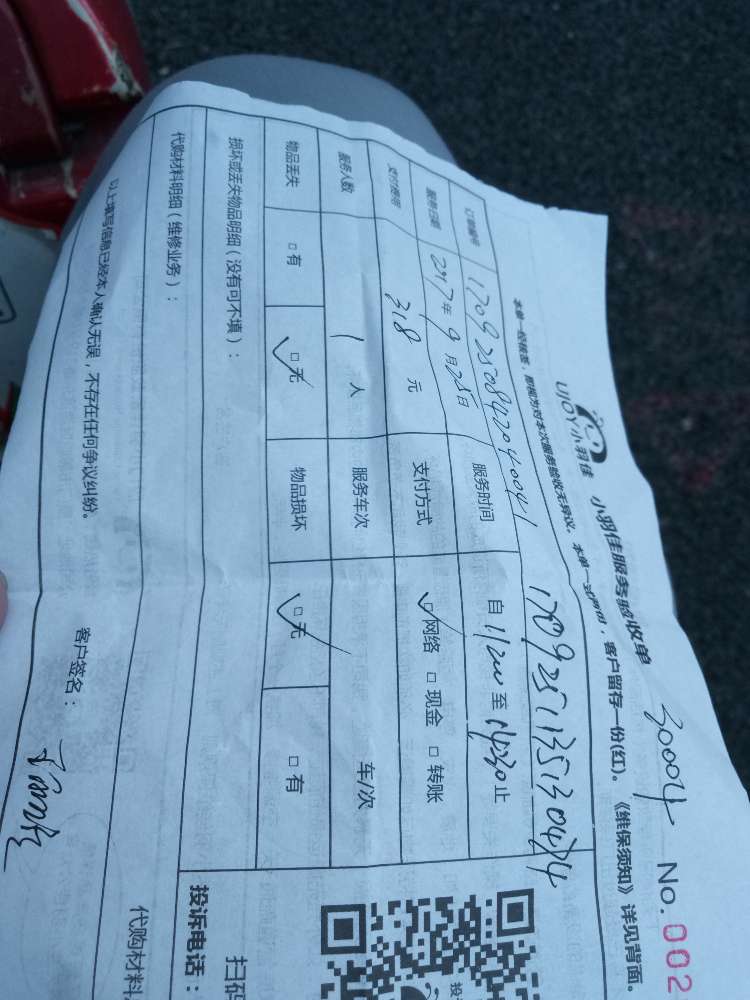 UJOY小羽佳 小羽佳服务验收单 30004 No. 002
本单一经核签，即视为对本次服务验收无异议。本单一式两份，客户留存一份(红)。《维保须知》详见背面。
1709251135130474
订单编号 1709250842040041
服务日期 2017年9月25日 服务时间 自 11:00 至 14:30 止
支付费用 318 元 支付方式 □网络 □现金 □转账
服务人数 1 人 服务车次 车/次
物品丢失 □有 □无 物品损坏 □无 □有
损坏或丢失物品明细（没有可不填）：
代购材料明细（维修业务）：
以上填写信息已经本人确认无误，不存在任何争议纠纷。
客户签名：
投诉电话：
扫码
代购材料